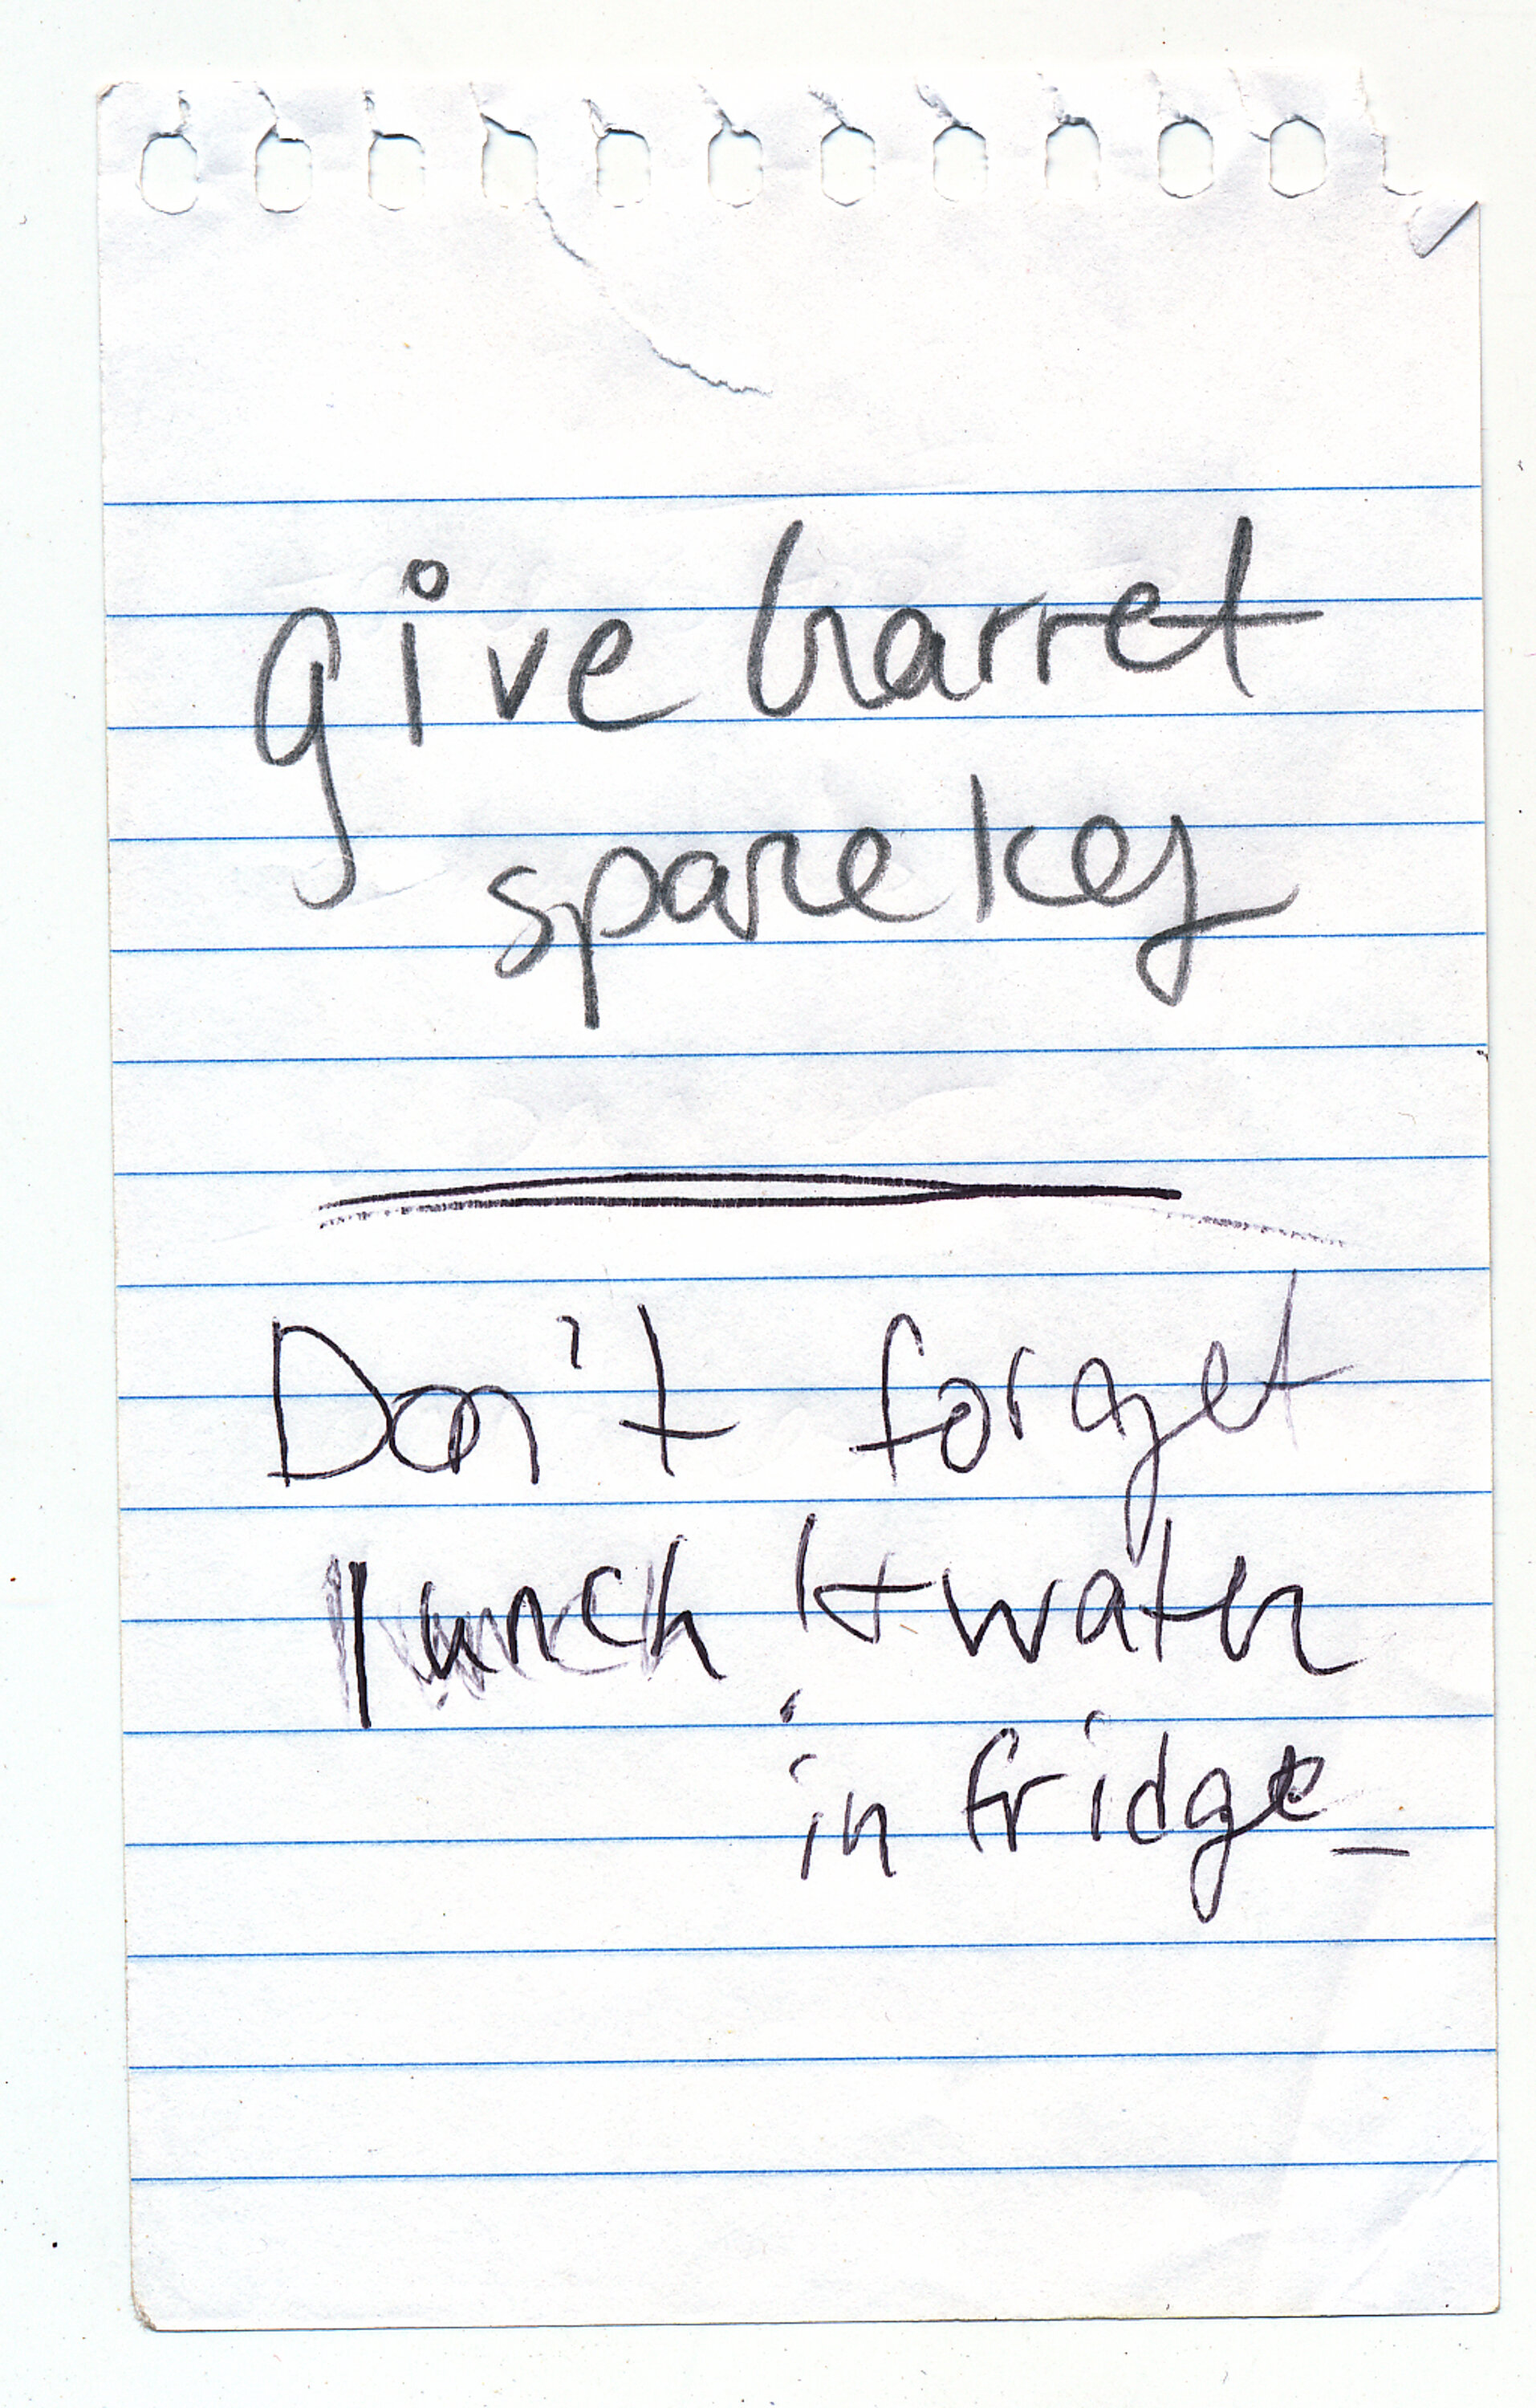 give barret
spare key
Don't forget
lunch + water
in fridge